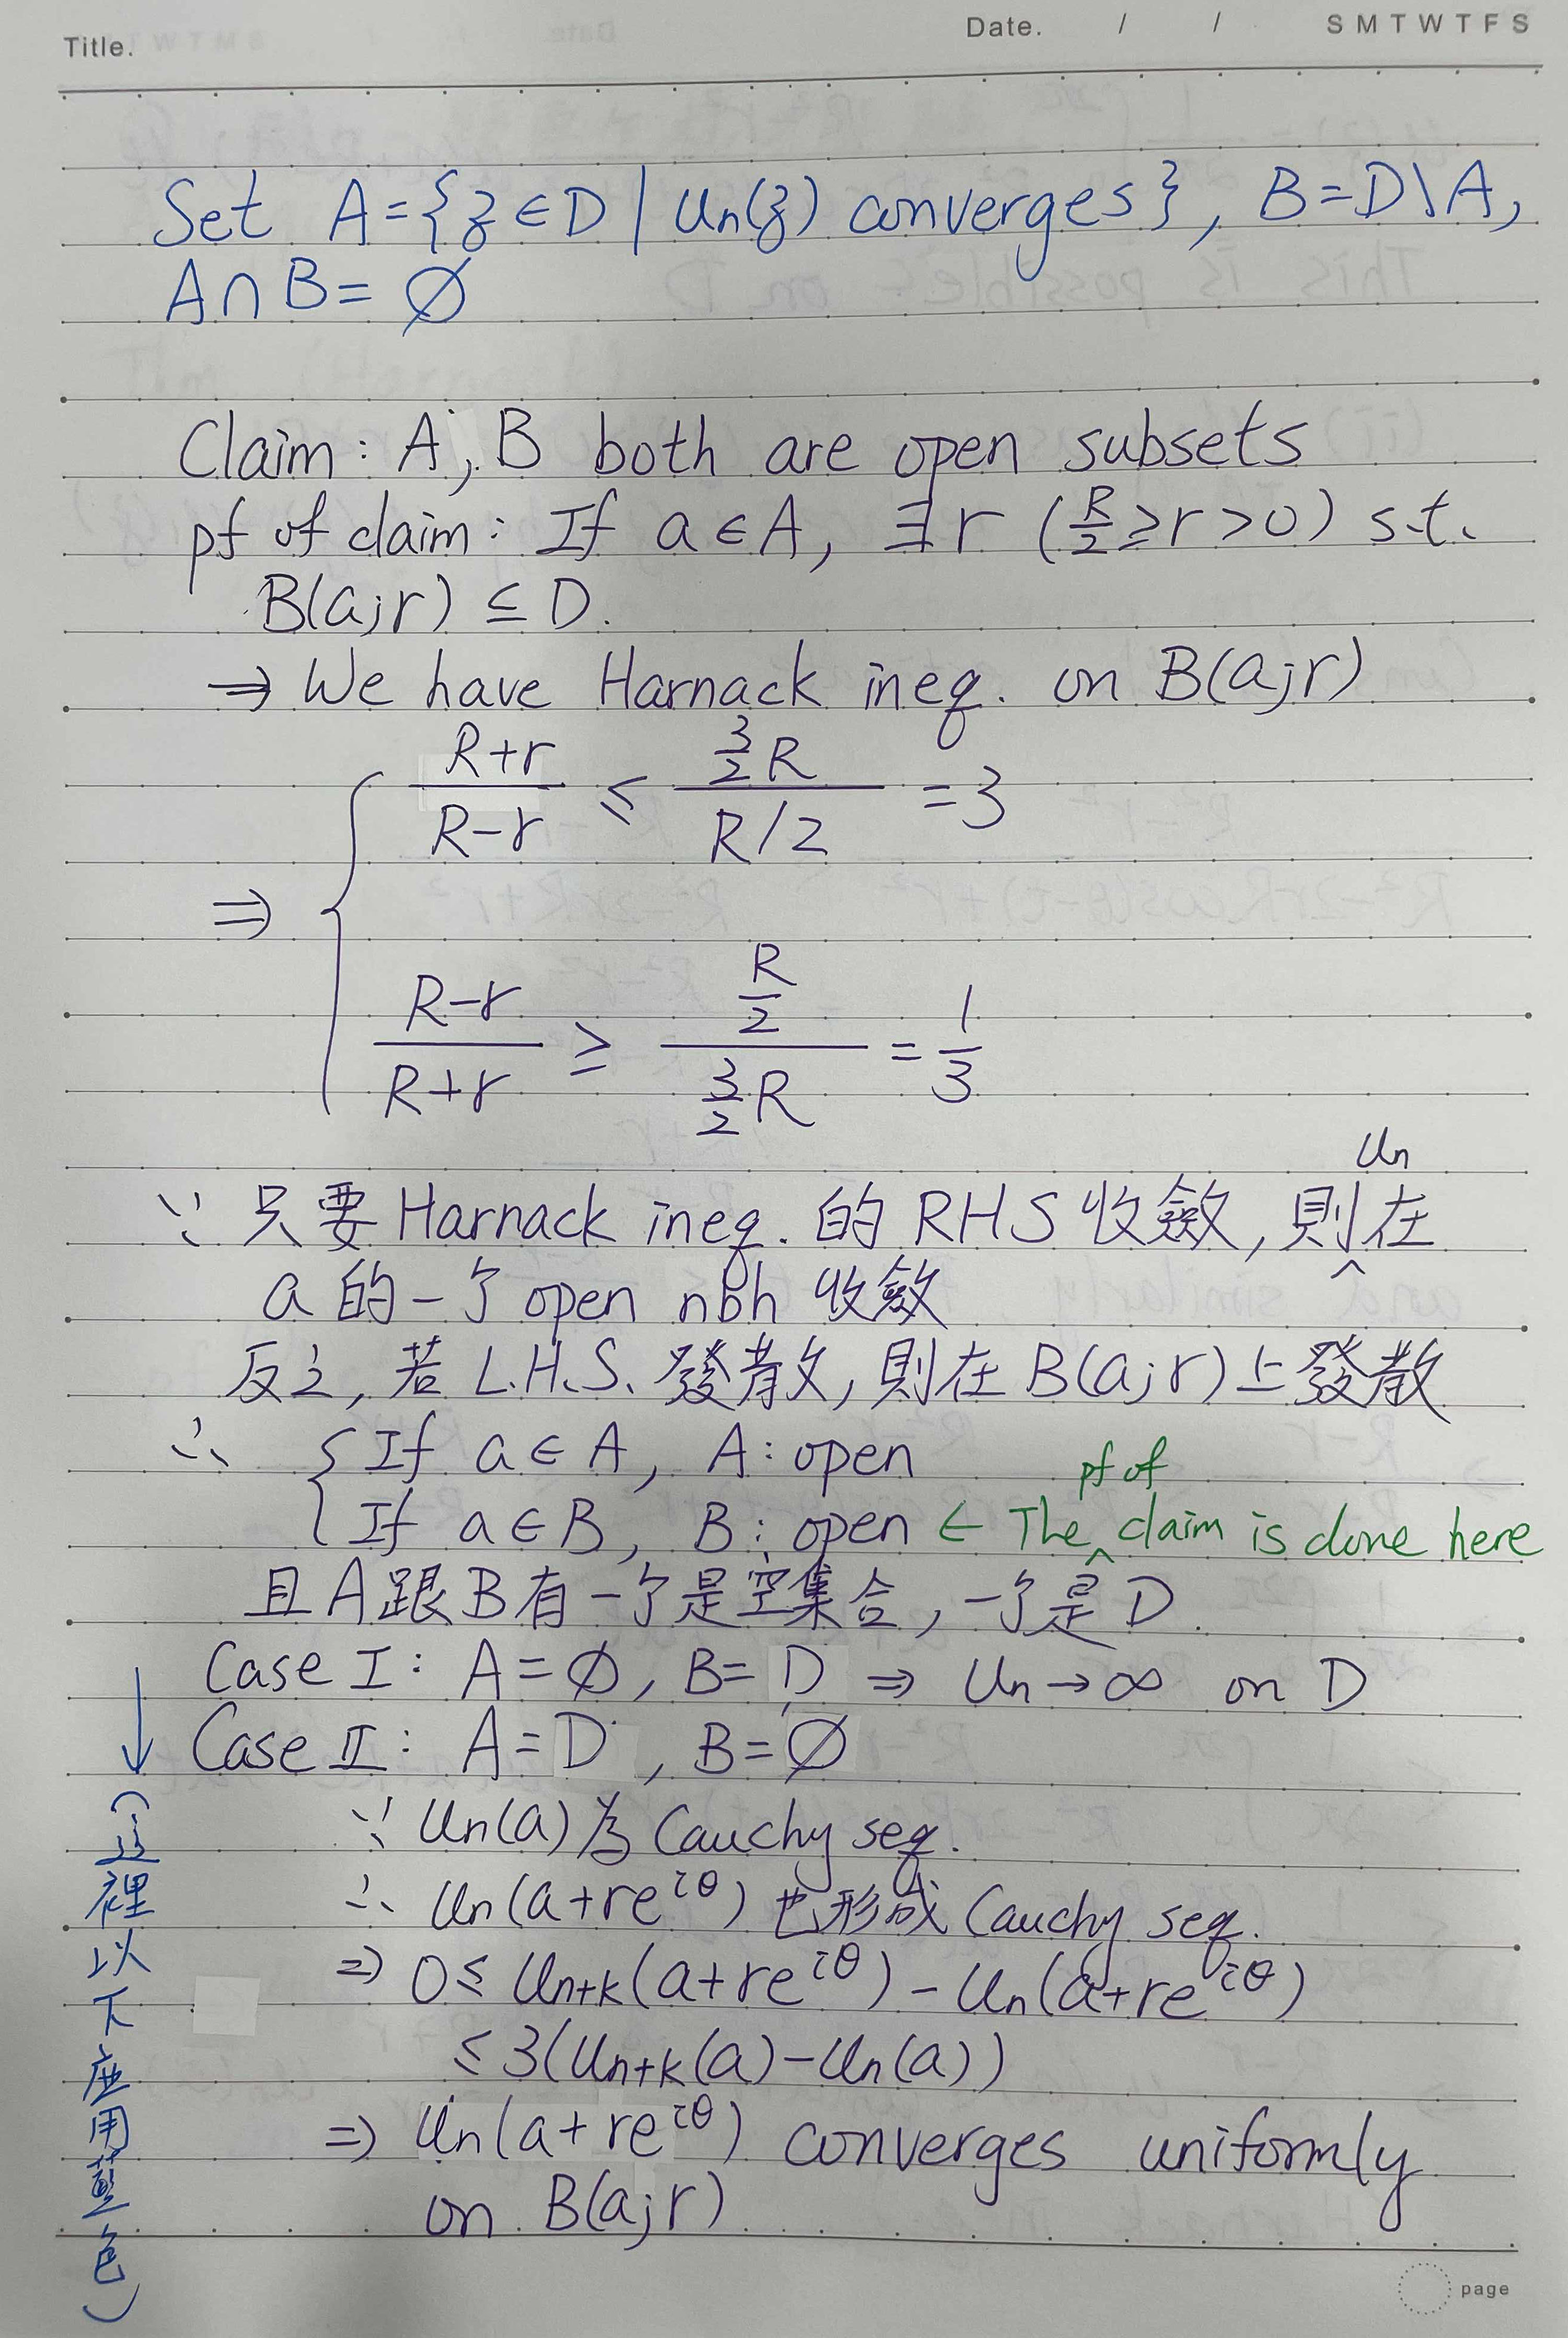 Title.
Date. / / S M T W T F S
Set A={z∈D | Un(z) converges}, B=D\A,
A∩B=∅
Claim: A, B both are open subsets
pf of claim: If a∈A, ∃r (R/2≥r>0) s.t.
B(a;r)⊆D.
⇒ We have Harnack ineq. on B(a;r)
⇒ { (R+r)/(R-r) ≤ (3/2 R)/(R/2) =3
(R-r)/(R+r) ≥ (R/2)/(3/2 R) = 1/3
∵ 只要 Harnack ineq. 的 RHS 收斂, 則 Un 在
a 的一个 open nbh 收斂
反之, 若 L.H.S. 發散, 則在 B(a;r) 上發散
∴ { If a∈A, A: open
If a∈B, B: open ← The pf of claim is done here
且 A 跟 B 有一个是空集合, 一个是 D.
Case I: A=∅, B=D ⇒ Un→∞ on D
Case II: A=D, B=∅
∵ Un(a) 為 Cauchy seq.
∴ Un(a+re^{iθ}) 也形成 Cauchy seq.
⇒ 0≤ Un+k(a+re^{iθ}) - Un(a+re^{iθ})
≤3(Un+k(a)-Un(a))
⇒ Un(a+re^{iθ}) converges uniformly
on B(a;r)
↓(這裡以下应用藍色)
page